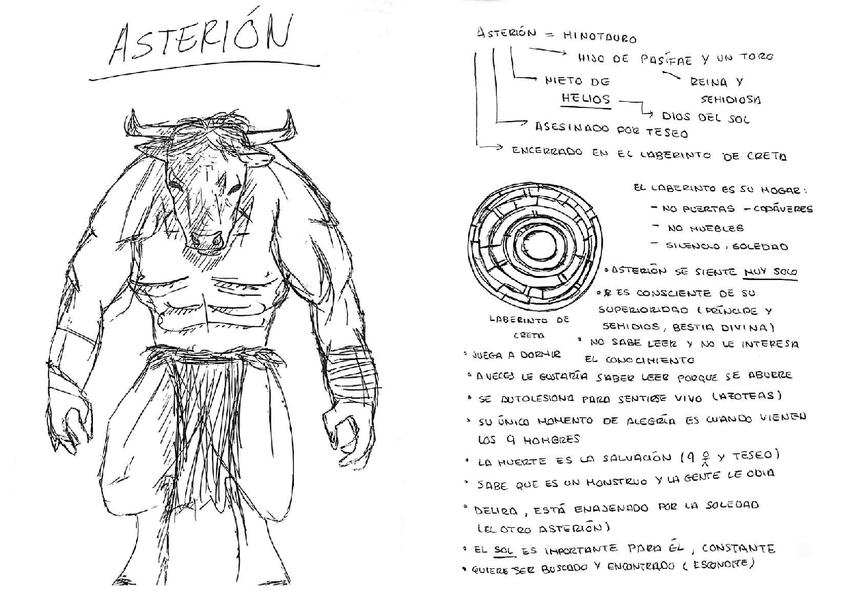 ASTERIÓN
ASTERIÓN = MINOTAURO
HIJO DE PASÍFAE Y UN TORO
REINA Y
SEMIDIOSA
NIETO DE
HELIOS
DIOS DEL SOL
ASESINADO POR TESEO
ENCERRADO EN EL LABERINTO DE CRETA
EL LABERINTO ES SU HOGAR:
- NO PUERTAS - CADÁVERES
- NO MUEBLES
- SILENCIO, SOLEDAD
LABERINTO DE
CRETA
• ASTERIÓN SE SIENTE MUY SOLO
• ES CONSCIENTE DE SU
SUPERIORIDAD (PRÍNCIPE Y
SEMIDIOS, BESTIA DIVINA)
• NO SABE LEER Y NO LE INTERESA
EL CONOCIMIENTO
• JUEGA A DORMIR
• A VECES LE GUSTARÍA SABER LEER PORQUE SE ABURRE
• SE AUTOLESIONA PARA SENTIRSE VIVO (AZOTEAS)
• SU ÚNICO MOMENTO DE ALEGRÍA ES CUANDO VIENEN
LOS 9 HOMBRES
• LA MUERTE ES LA SALVACIÓN (9 Y TESEO)
• SABE QUE ES UN MONSTRUO Y LA GENTE LE ODIA
• DELIRA, ESTÁ ENAJENADO POR LA SOLEDAD
(EL OTRO ASTERIÓN)
• EL SOL ES IMPORTANTE PARA ÉL, CONSTANTE
• QUIERE SER BUSCADO Y ENCONTRADO (ESCONDITE)